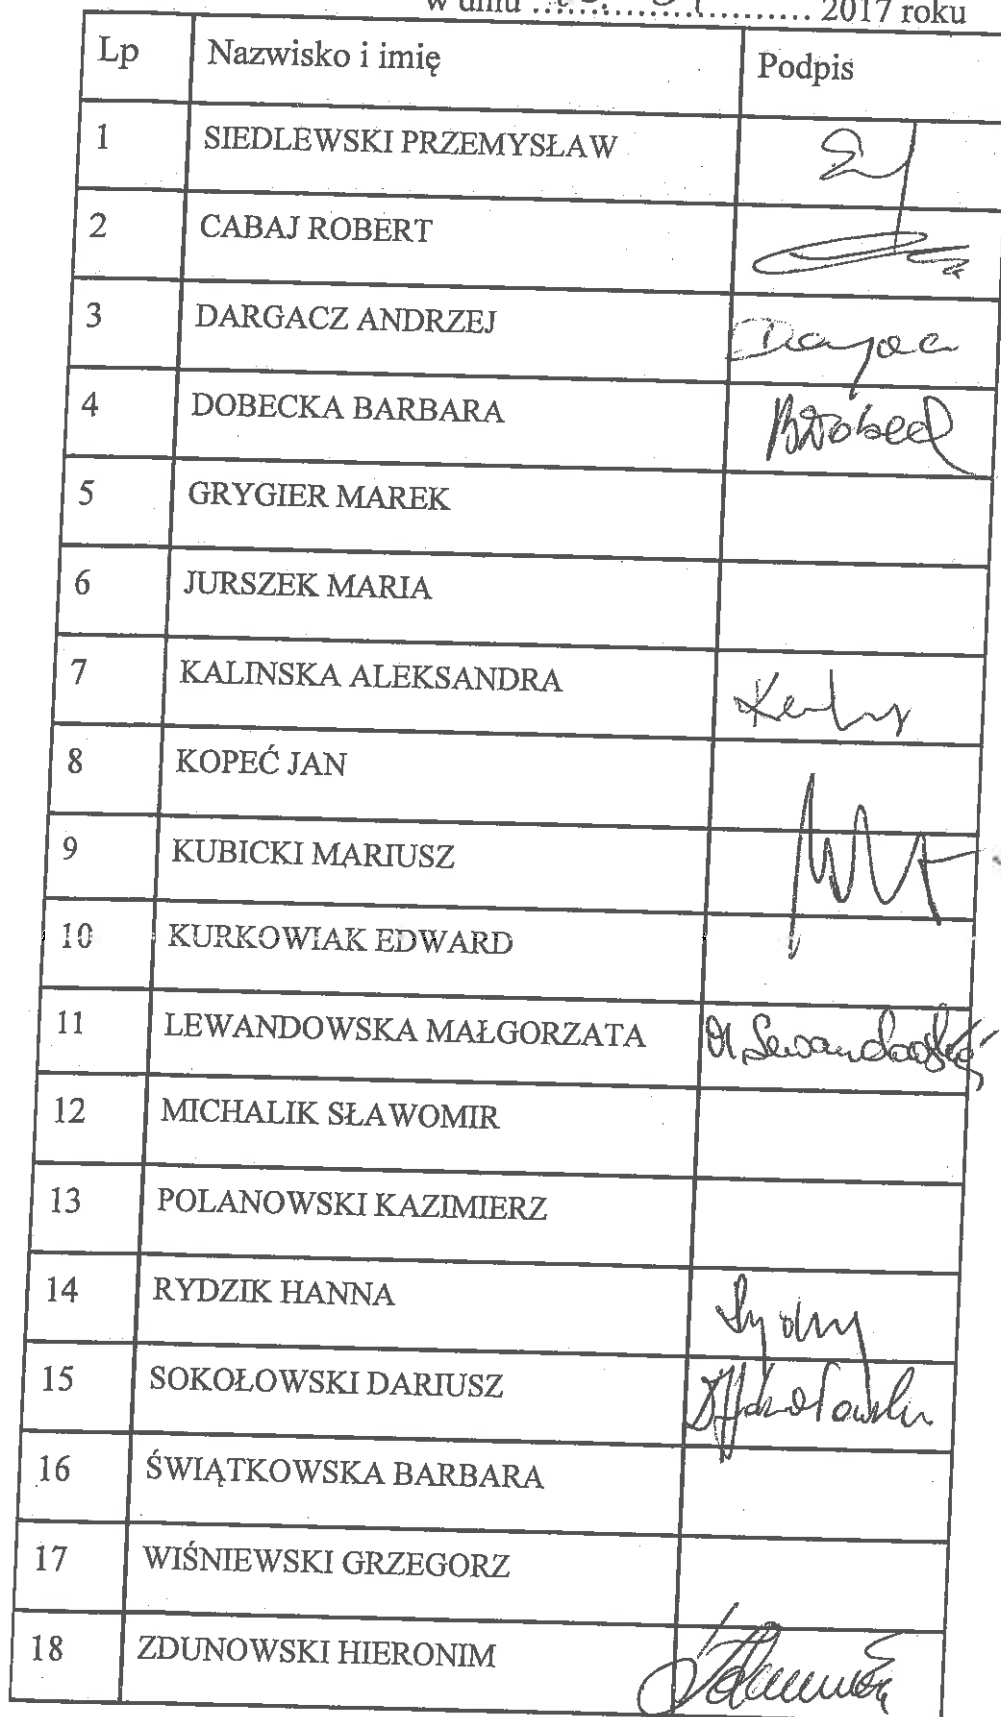 w dniu ........................ 2017 roku
Lp Nazwisko i imię Podpis
1 SIEDLEWSKI PRZEMYSŁAW
2 CABAJ ROBERT
3 DARGACZ ANDRZEJ
4 DOBECKA BARBARA
5 GRYGIER MAREK
6 JURSZEK MARIA
7 KALINSKA ALEKSANDRA
8 KOPEĆ JAN
9 KUBICKI MARIUSZ
10 KURKOWIAK EDWARD
11 LEWANDOWSKA MAŁGORZATA M Lewandowska
12 MICHALIK SŁAWOMIR
13 POLANOWSKI KAZIMIERZ
14 RYDZIK HANNA
15 SOKOŁOWSKI DARIUSZ
16 ŚWIĄTKOWSKA BARBARA
17 WIŚNIEWSKI GRZEGORZ
18 ZDUNOWSKI HIERONIM